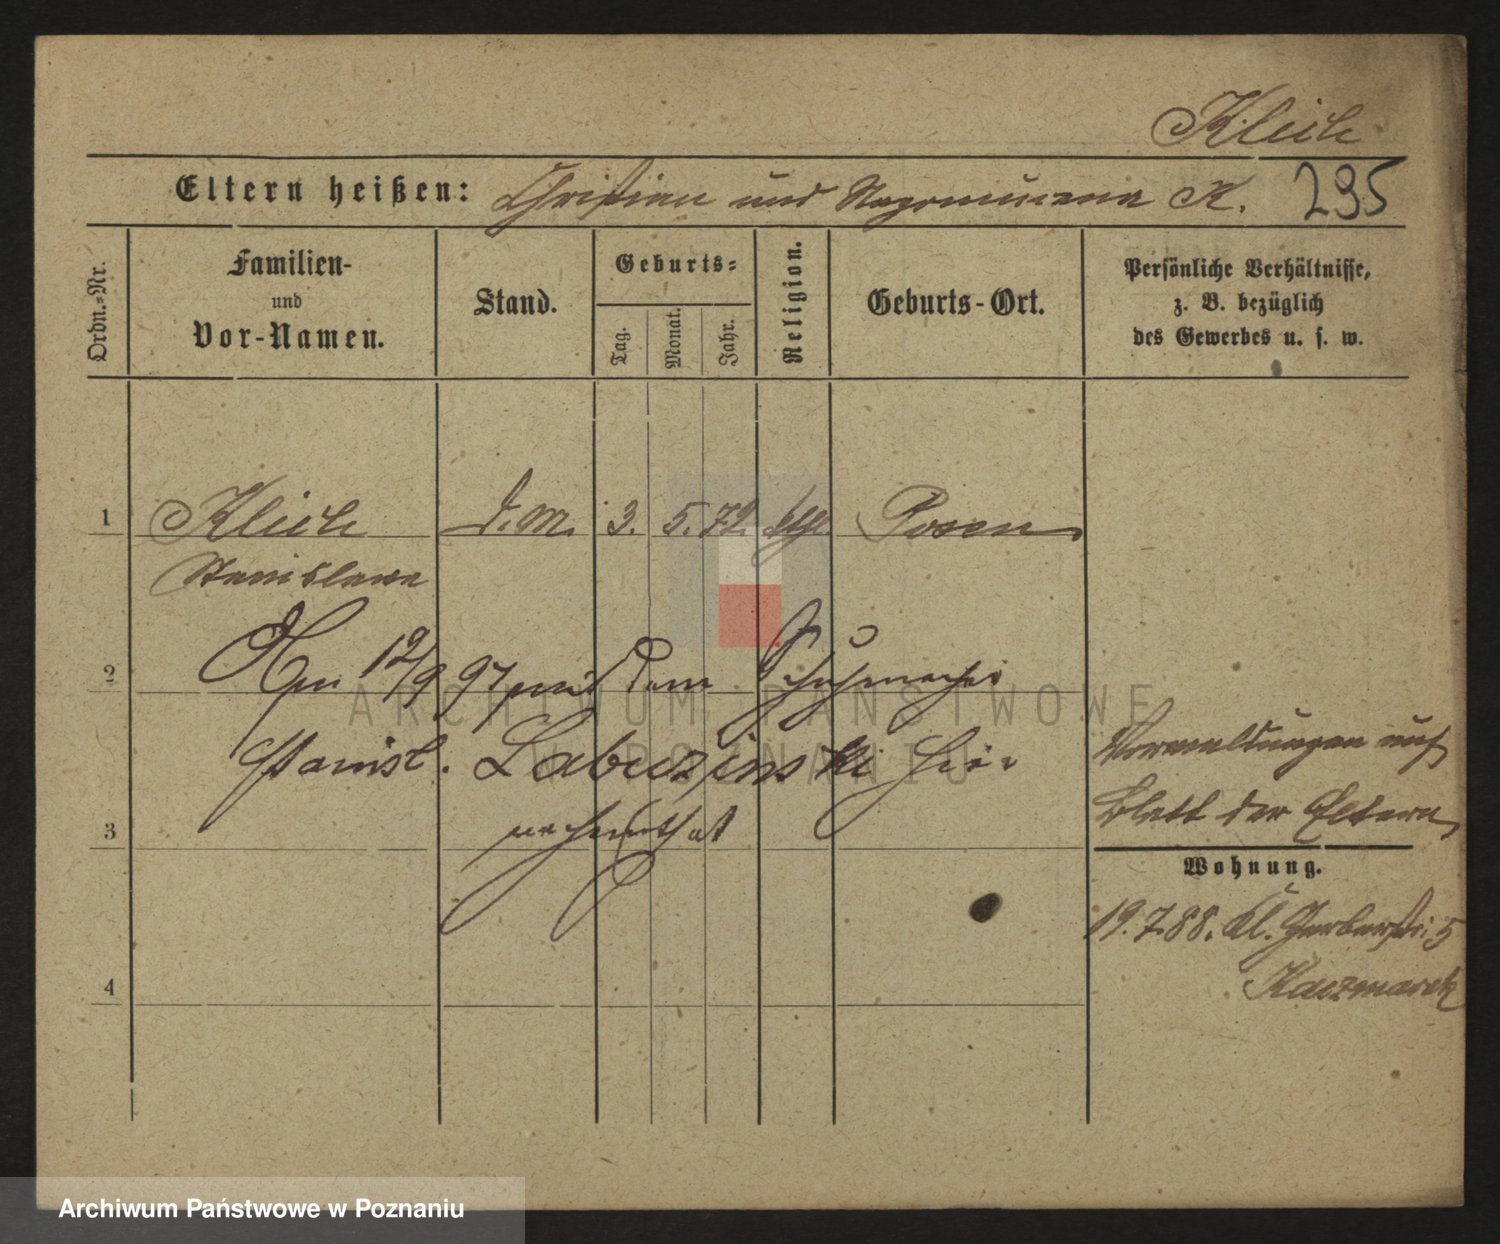 Klich
Eltern heißen: Christian und Nepomucena K. 295
Ordn.=Nr.
Familien-
und
Vor-Namen.
Stand.
Geburts=
Tag.
Monat.
Jahr.
Religion.
Geburts-Ort.
Persönliche Verhältnisse,
z. B. bezüglich
des Gewerbes u. s. w.
1 Klich d.M. 3. 5. 72. kth. Posen
Stanislawa
2 Am 12/9 97 mit dem Schuhmacher
Stanisl. Labuzinski hier
3 verheirathet
4
auf
Blatt der Eltern
Wohnung.
19.7.88. Kl. Gerberstr. 5
Kaczmarek
ARCHIWUM PAŃSTWOWE
W POZNANIU
Archiwum Państwowe w Poznaniu